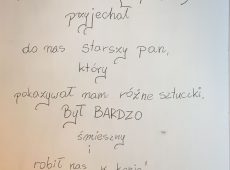 przyjechał
do nas starszy pan,
który
pokazywał nam różne sztuczki.
Był BARDZO
śmieszny
i
robił nas "w konia"